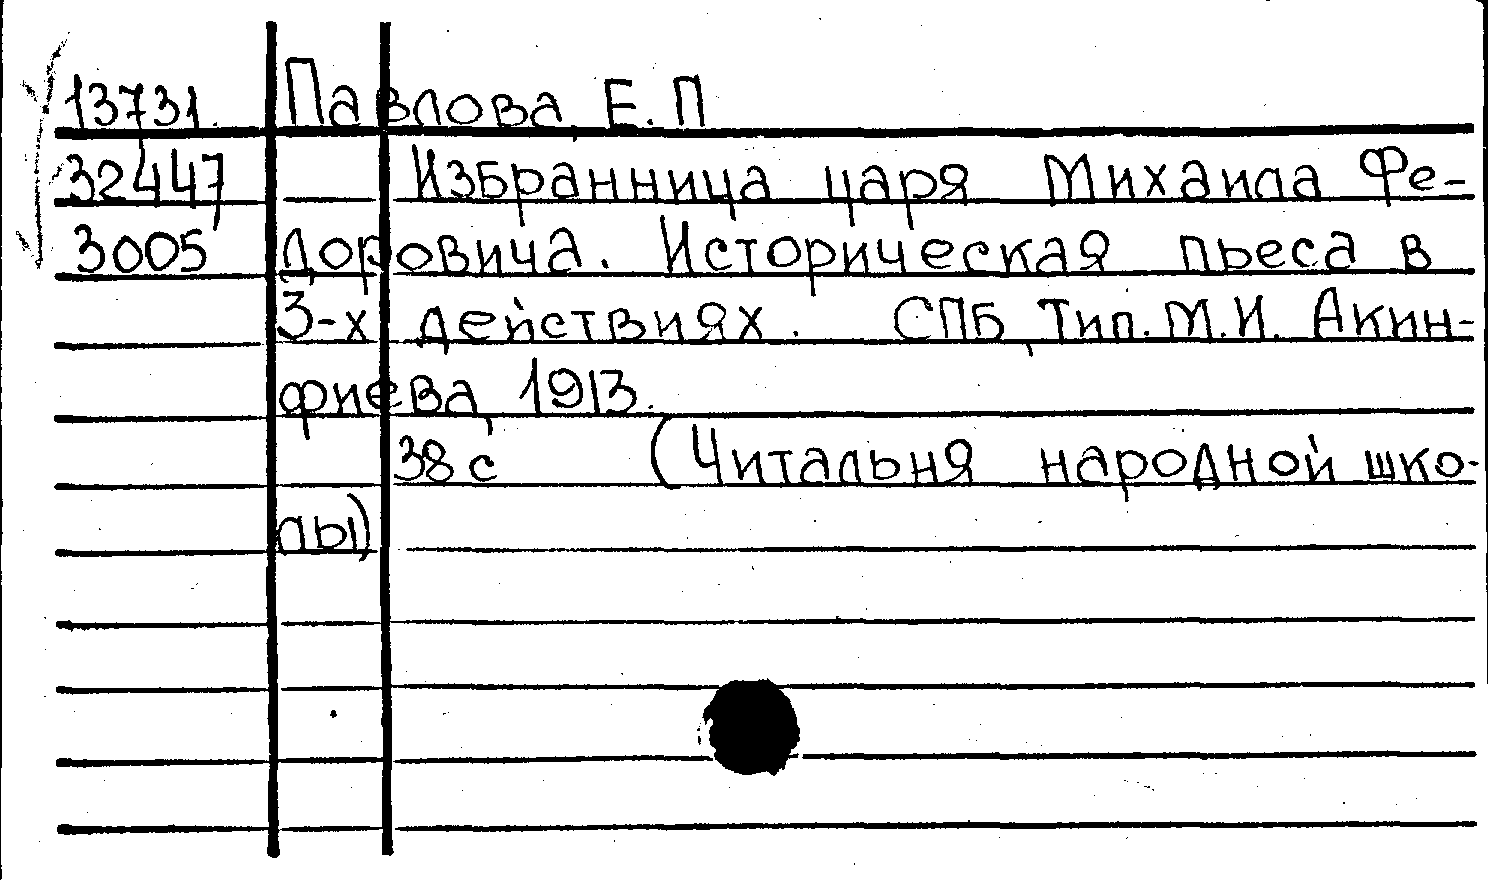 13731. Павлова, Е. П
32447 Избранница царя Михаила Фе-
3005 доровича. Историческая пьеса в
3-х действиях. СПБ, Тип. М.И. Акин-
фиева, 1913.
38 с (Читальня народной шко-
лы)